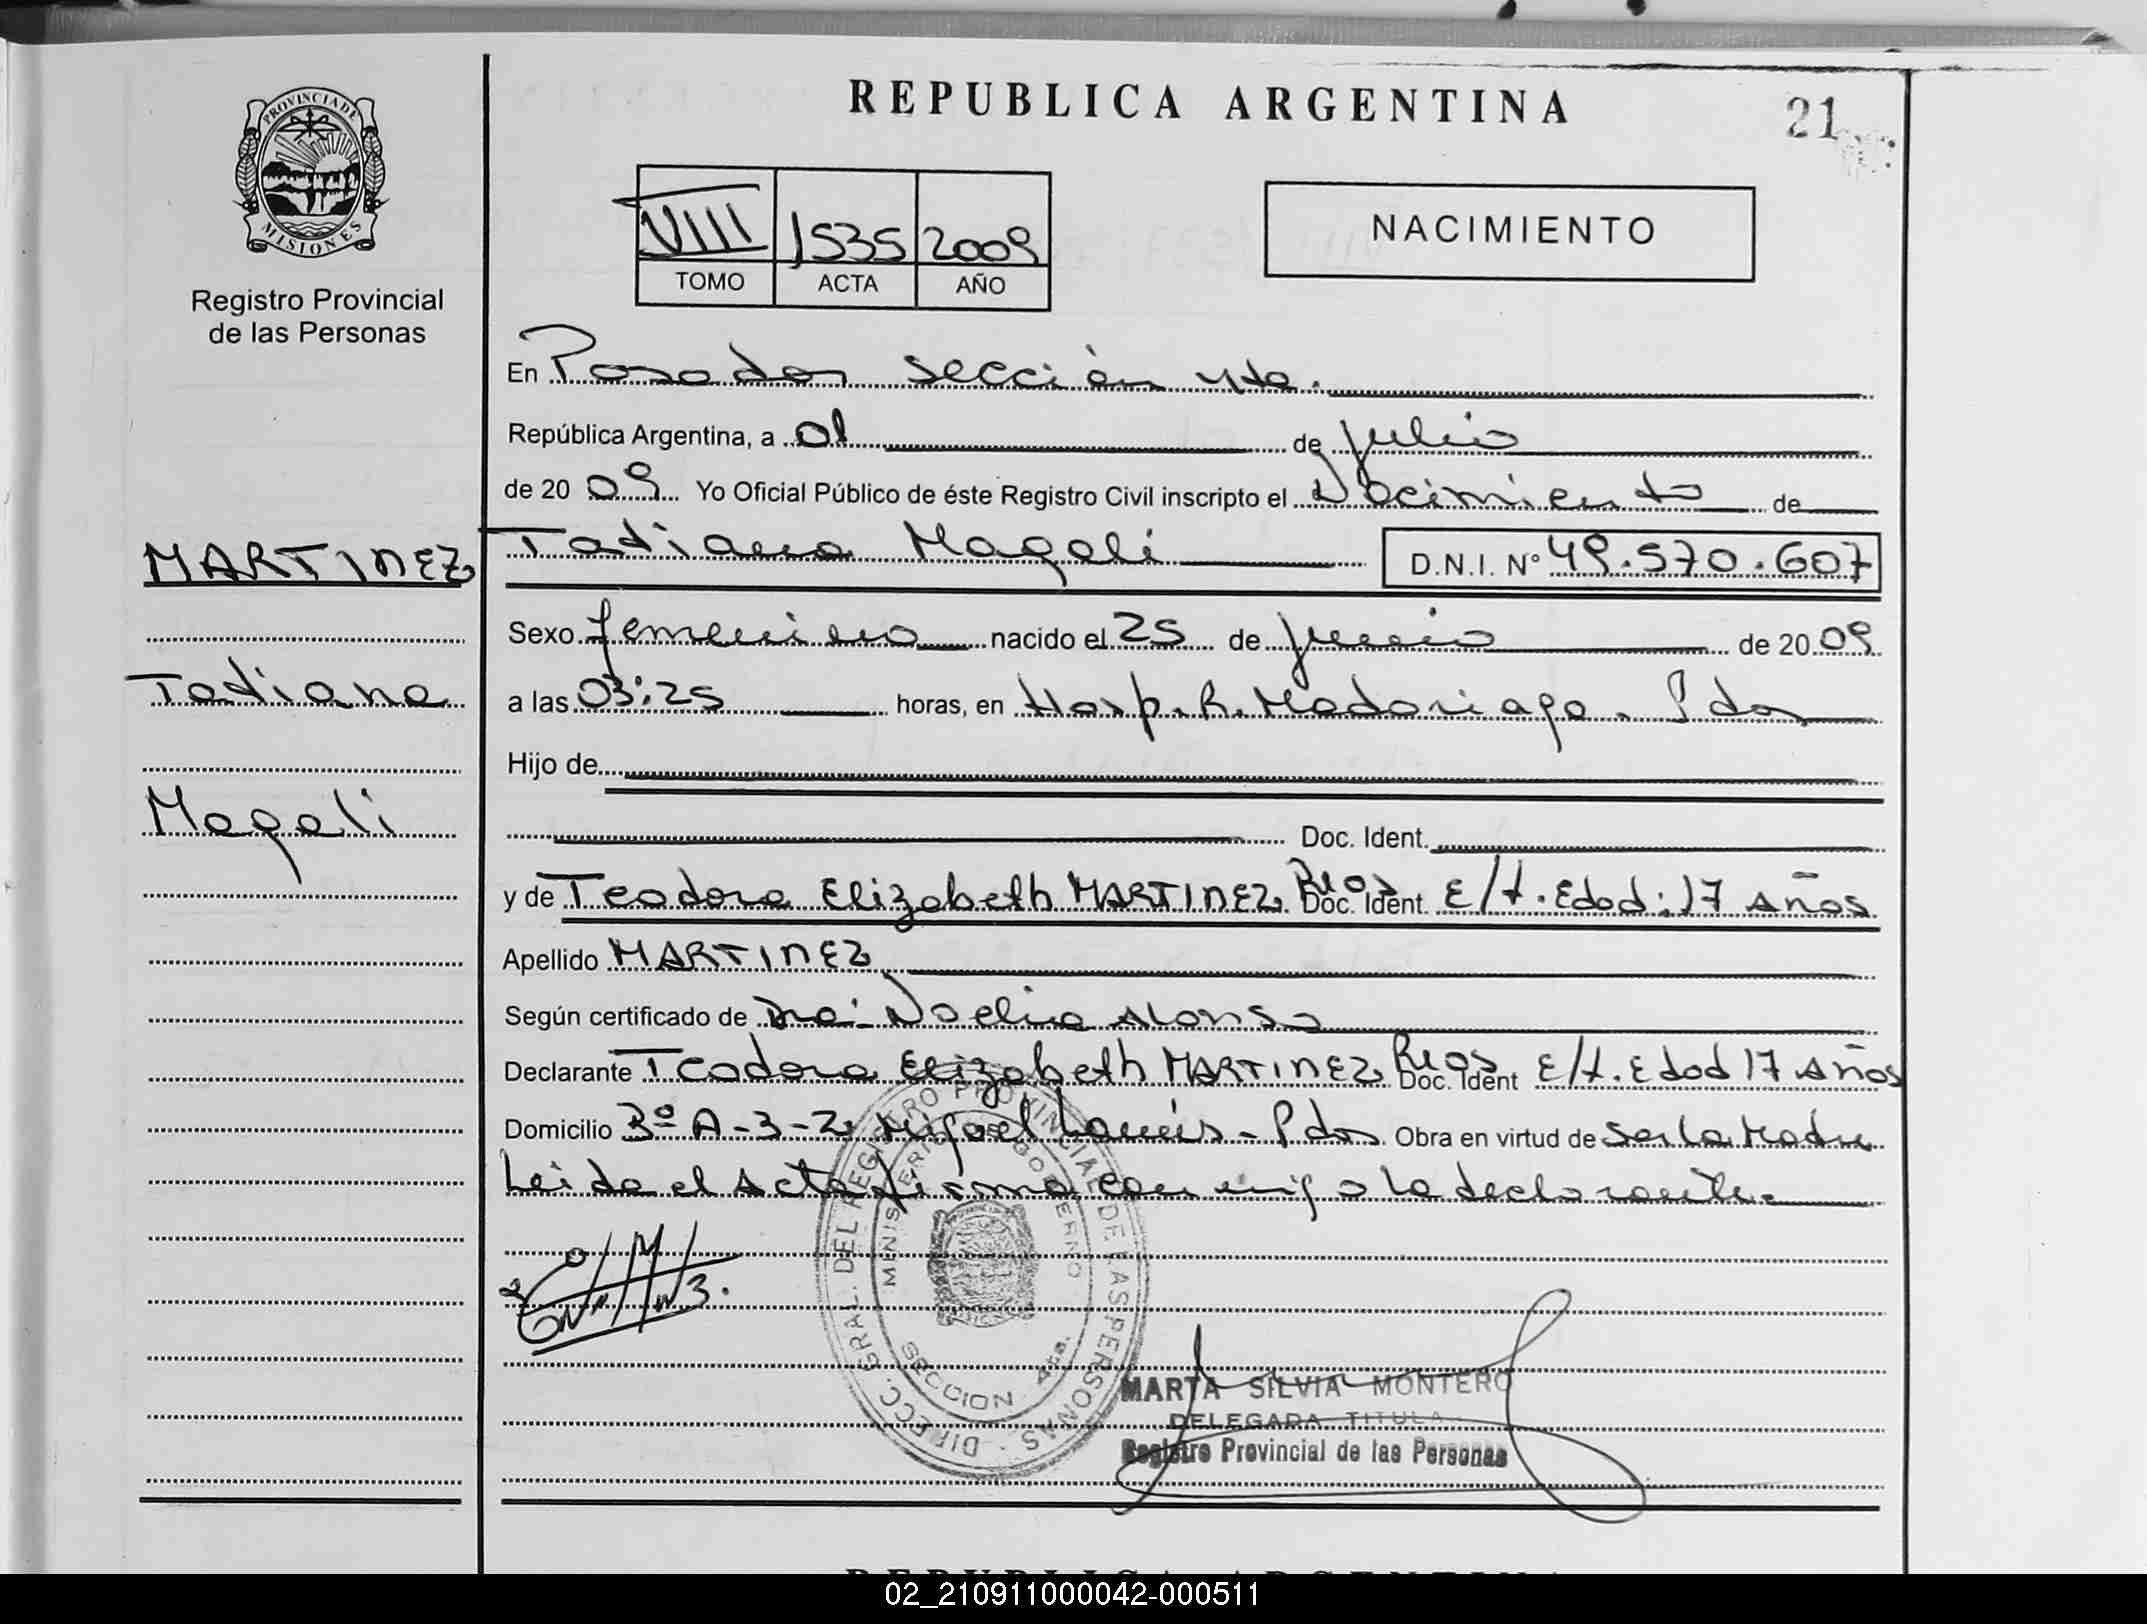 REPUBLICA ARGENTINA
21
PROVINCIA DE
MISIONES
Registro Provincial
de las Personas
VIII 1535 2009
TOMO ACTA AÑO
NACIMIENTO
En Posadas sección 4ta.
República Argentina, a 01 de julio
de 2009 Yo Oficial Público de éste Registro Civil inscripto el Nacimiento de
MARTINEZ
Tatiana Magali D.N.I. Nº 49.570.607
Sexo femenino nacido el 25 de junio de 2009
Tatiana
a las 03:25 horas, en Hosp. R. Madariaga. Pdas
Hijo de
Magali
Doc. Ident.
y de Teodora Elizabeth MARTINEZ Rios Doc. Ident. E/t. Edad: 17 años
Apellido MARTINEZ
Según certificado de Dra. Noelia Alonso
Declarante Teodora Elizabeth MARTINEZ Rios Doc. Ident E/t. Edad 17 años
Domicilio 3º A-3-2, Miguel Lanús - Pdas Obra en virtud de ser la Madre
Leida el Acta firma conmigo la declarante.
DIRECC. GRAL. DEL REGISTRO PROVINCIAL DE LAS PERSONAS
MINISTERIO DE GOBIERNO
SECCION 4ta.
MARTA SILVIA MONTERO
DELEGADA TITULAR
Registro Provincial de las Personas
REPUBLICA ARGENTINA
02_210911000042-000511